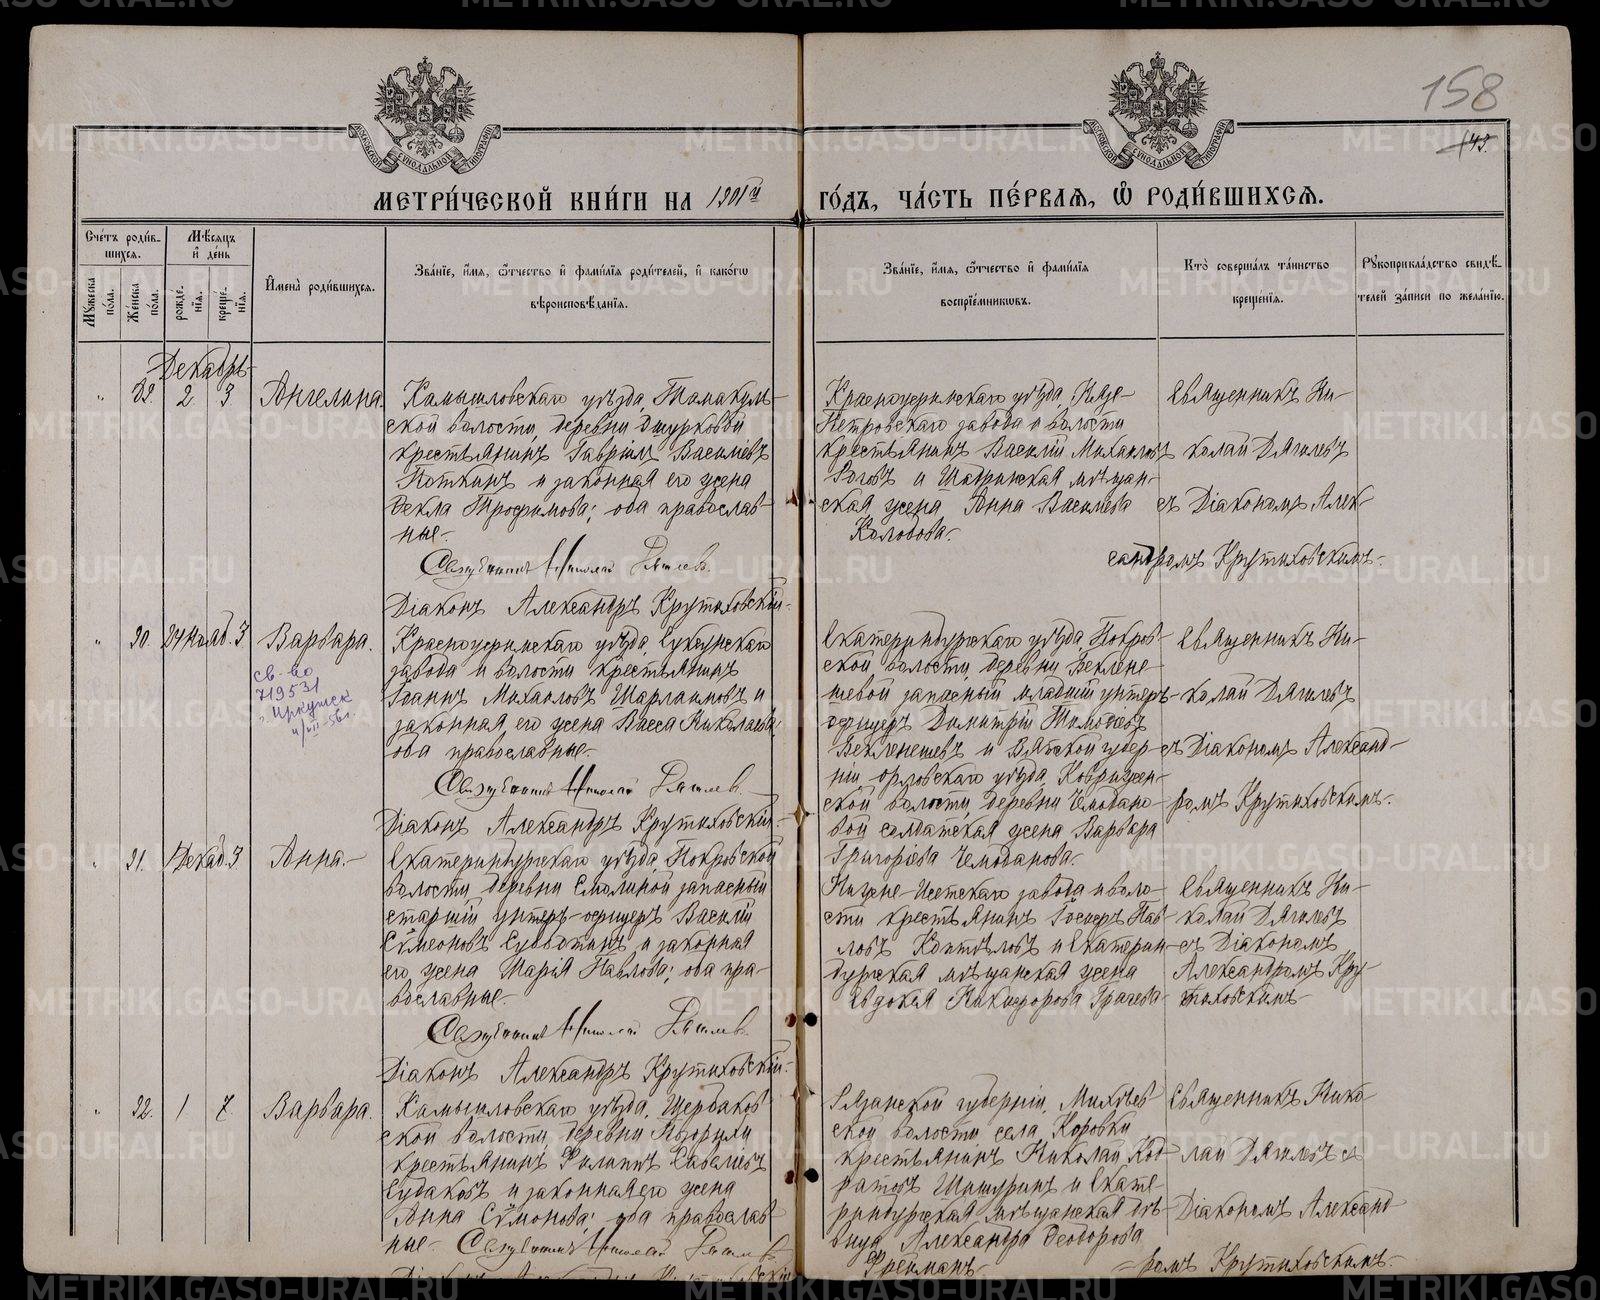 158
143.
МЕТРИ́ЧЕСКОЙ КНИ́ГИ НА 1901й ГО́ДЪ, ЧА́СТЬ ПЕ́РВАЯ, Ѽ РОДИ́ВШИХСЯ.
Сче́тъ роди́в-
шихся.
Мꙋжеска по́ла.
Же́нска по́ла.
Мѣ́сяцъ и де́нь
рожде́-
нїя.
креще́-
нїя.
И҆мена̀ роди́вшихся.
Зва́нїе, и҆́мя, ѻ҆́тчество и҆ фами́лїя роди́телей, и҆ како́гѡ
вѣроисповѣ́данїя.
Зва́нїе, и҆́мя, ѻ҆́тчество и҆ фами́лїя
воспрїе́мникѡвъ.
Кто̀ соверша́лъ та́инство
креще́нїя.
Рꙋкоприкла́дство свидѣ́-
телей за́писи по жела́нїю.
Декабрь
" 29. 2 3 Ангелина.
Камышловскаго уѣзда, Тамакуль-
ской волости, деревни
крестьянинъ Гавріилъ Васильевъ
Поткинъ и законная его жена
Ѳекла Трофимова; оба православ-
ные.-
Священникъ Николай Дягилевъ.
Діаконъ Александръ Крутиховскій.
Красноуфимскаго уѣзда, Нязе-
Петровскаго завода и волости
крестьянинъ Василій Михаиловъ
Роговъ и Шадринская мѣщан-
ская жена Анна Васильева
Колобова.-
Священникъ Ни-
колай Дягилевъ
съ Діакономъ Алек-
сандромъ Крутиховскимъ.-
" 30. 24 Нояб. 3 Варвара.
св-во
719531
г. Иркутск
4/VII-56г.
Красноуфимскаго уѣзда,
завода и волости крестьянинъ
Іоаннъ Михаиловъ Шарламовъ и
законная его жена Васса Николаева;
оба православные.-
Священникъ Николай Дягилевъ.
Діаконъ Александръ Крутиховскій.-
Екатеринбургскаго уѣзда, Покров-
ской волости, деревни Беклене-
шевой запасный младшій унтеръ-
офицеръ Димитрій Тимофеевъ
Бекленешевъ и Вятской губер-
ніи орловскаго уѣзда,
ской волости, деревни Чемодано-
вой солдатская жена Варвара
Григоріева Чемоданова.
Священникъ Ни-
колай Дягилевъ
съ Діакономъ Александ-
ромъ Крутиховскимъ.-
" 31. 1 Декаб. 3 Анна.-
Екатеринбургскаго уѣзда, Покровской
волости, деревни Смолиной запасный
старшій унтеръ-офицеръ Василій
Сѵмеоновъ Субботинъ и законная
его жена Марія Павлова; оба пра-
вославные.-
Священникъ Николай Дягилевъ.
Діаконъ Александръ Крутиховскій.-
Нижне-Исетскаго завода и воло-
сти крестьянинъ Іосифъ Пав-
ловъ Коптѣловъ и Екатерин-
бургская мѣщанская жена
Евдокія Никифорова Грачева
Священникъ Ни-
колай Дягилевъ
съ Діакономъ
Александромъ Кру-
тиховскимъ.
" 32. 1 7. Варвара.
Камышловскаго уѣзда, Щербаков-
ской волости, деревни
крестьянинъ Филиппъ Савельевъ
Судаковъ и законная его жена
Анна Сѵмонова; оба православ-
ные.- Священникъ Николай Дягилевъ
Діаконъ Александръ Крутиховскій
Рязанской губерніи, Михѣев-
ской волости, села Коровки
крестьянинъ Николай Код-
ратовъ Шашуринъ и Екате-
ринбургская мѣщанская дѣ-
вица Александра Ѳеодорова
Фрейманъ.
Священникъ Нико-
лай Дягилевъ съ
Діакономъ Александ-
ромъ Крутиховскимъ.-